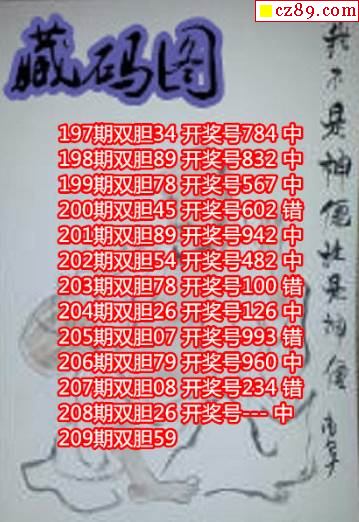 cz89.com
藏码图
197期双胆34 开奖号784 中
198期双胆89 开奖号832 中
199期双胆78 开奖号567 中
200期双胆45 开奖号602 错
201期双胆89 开奖号942 中
202期双胆54 开奖号482 中
203期双胆78 开奖号100 错
204期双胆26 开奖号126 中
205期双胆07 开奖号993 错
206期双胆79 开奖号960 中
207期双胆08 开奖号234 错
208期双胆26 开奖号--- 中
209期双胆59
我不是神但
是神